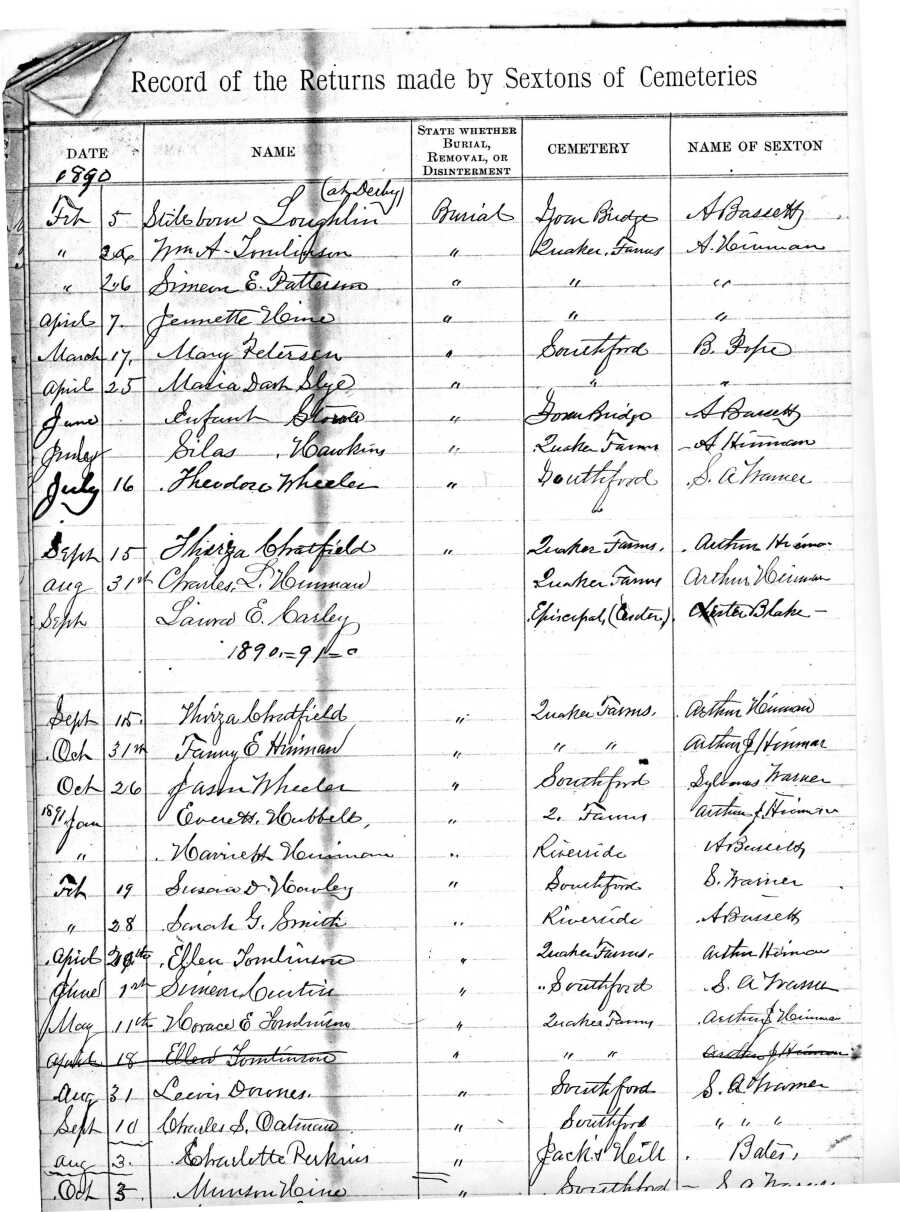 Record of the Returns made by Sextons of Cemeteries
DATE NAME STATE WHETHER BURIAL, REMOVAL, OR DISINTERMENT CEMETERY NAME OF SEXTON
1890
(at Derby)
Feb 5 Stillborn Loughlin Burial Zoar Bridge A Bassett
" 26 Wm A. Tomlinson " Quaker Farms A. Hinman
" 26 Simeon E. Patterson " " "
April 7. Jennette Hine " " "
March 17. Mary Petersen " Southford B. Pope
April 25 Maria Dash Slye " " "
June Infant " Zoar Bridge A Bassett
Silas Hawkins " Quaker Farms A Hinman
July 16 Theodore Wheeler " Southford S. A Warner
"
Sept 15 Thirza Chatfield " Quaker Farms. Arthur Hinman
Aug 31st Charles L. Hinman Quaker Farms Arthur Hinman
Sept Laura E. Carley Episcopal, (Center) Chester Blake -
1890-=91-0
Sept 15. Thirza Chatfield " Quaker Farms. Arthur Hinman
Oct 31st Fanny E Hinman " " " Arthur J Hinman
Oct 26 Jason Wheeler " Southford Sylvanus Warner
1891 Jan Everett Hubbell, " Q. Farms Arthur J. Hinman
" Harriett Hinman " Riverside A Bassett
Feb 19 Susan D. Hawley " Southford S. Warner
" 28 Sarah G. Smith " Riverside A Bassett
April Ellen Tomlinson " Quaker Farms. Arthur Hinman
June 1st Simeon Curtiss " " Southford S. A Warner
May 11th Horace E Tomlinson " Quaker Farms Arthur J Hinman
April 18 Ellen Tomlinson " " " Arthur J Hinman
Aug 31 Lewis Downes. " Southford S. A Warner
Sept 10 Charles S. Oatman " Southford " " "
Aug 3. Charlotte Perkins " Jack's Hill Bates,
Oct 3 Munson Hine " Southford - S A Warner